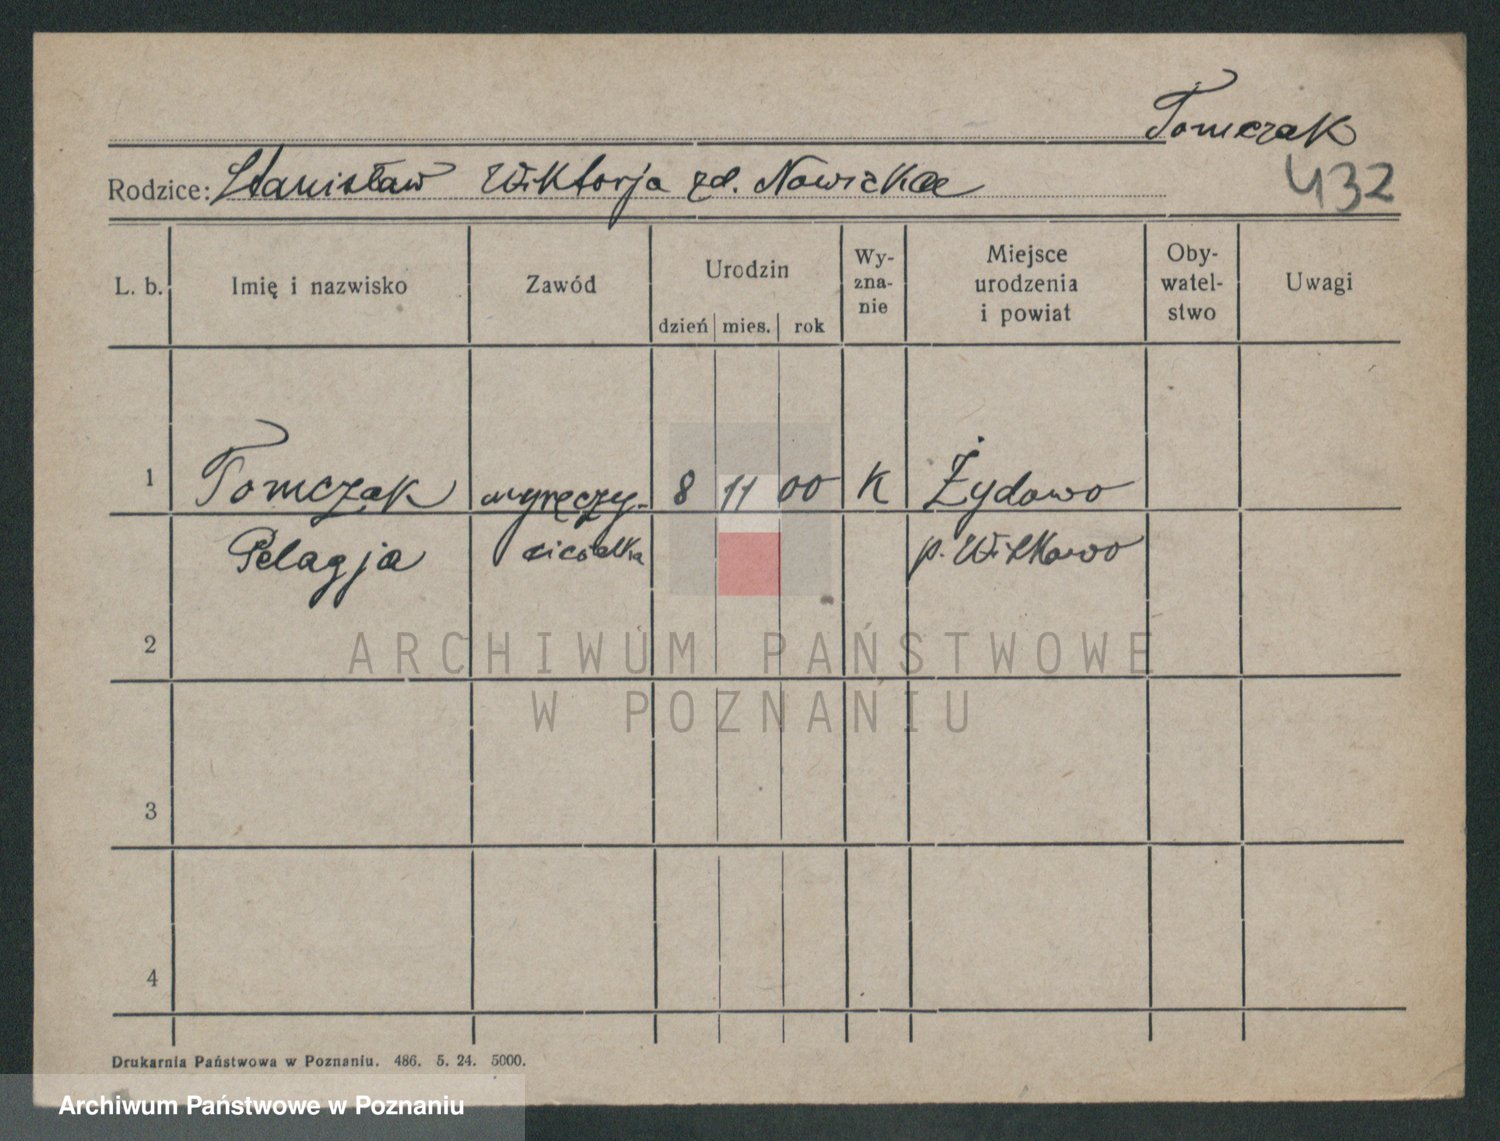 Tomczak
Rodzice: Stanisław Wiktorja zd. Nowicka
432
L. b. Imię i nazwisko Zawód Urodzin dzień mies. rok Wy-zna-nie Miejsce urodzenia i powiat Oby-watel-stwo Uwagi
1 Tomczak wyręczy- 8 11 00 K Żydowo
Pelagja cicielka p. Witkowo
2
3
4
Drukarnia Państwowa w Poznaniu. 486. 5. 24. 5000.
ARCHIWUM PAŃSTWOWE
W POZNANIU
Archiwum Państwowe w Poznaniu